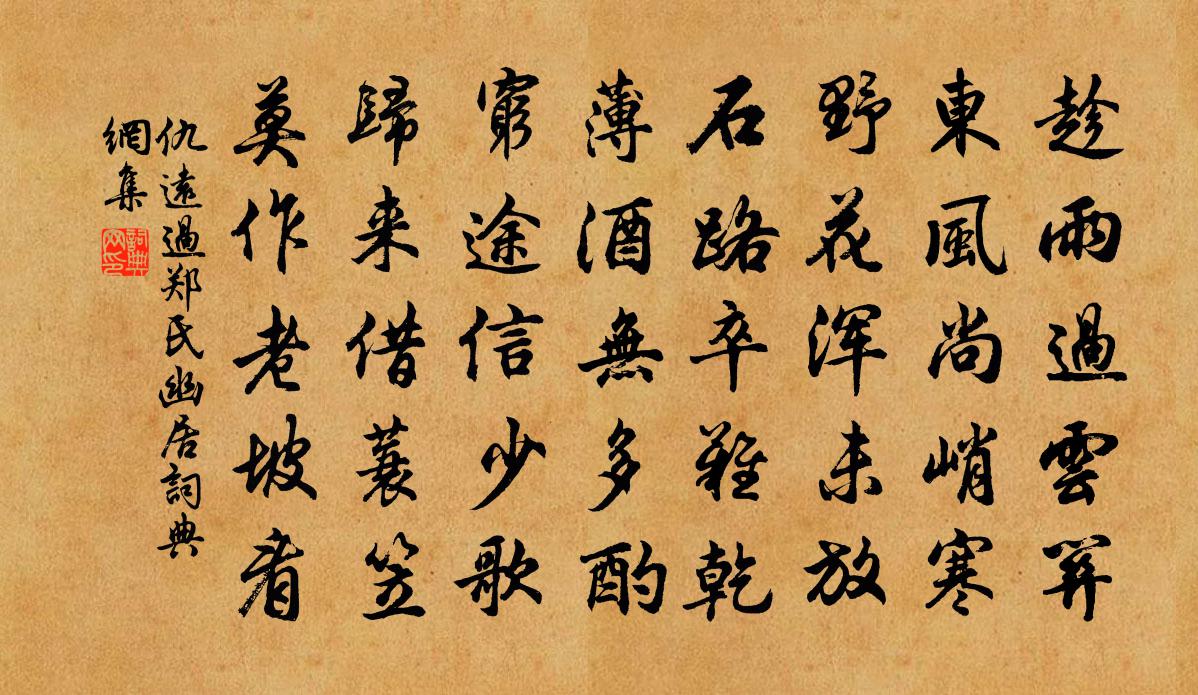 趁雨過雲關
東風尚峭寒
野花浑未放
石路卒難乾
薄酒無多酌
窮途信少歌
歸来借蓑笠
莫作老坡看
仇遠過郑氏幽居詞典
網集
詞典
网印